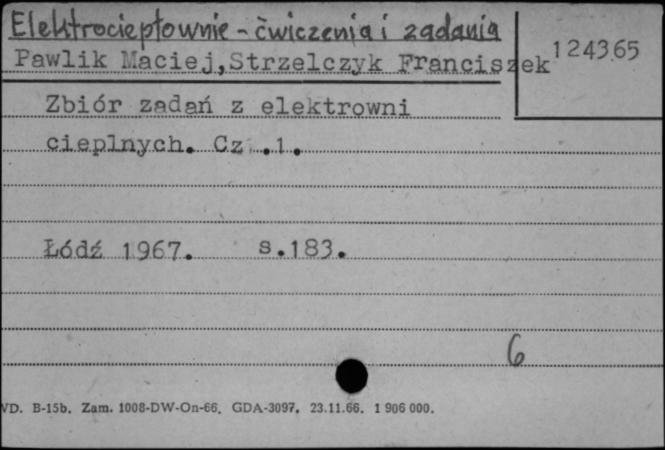 Elektrociepłownie - ćwiczenia i zadania
124365
Pawlik Maciej,Strzelczyk Franciszek
Zbiór zadań z elektrowni
cieplnych. Cz .1.
Łódź 1967. s.183.
6
VD. B-15b. Zam. 1008-DW-On-66. GDA-3097. 23.11.66. 1 906 000.